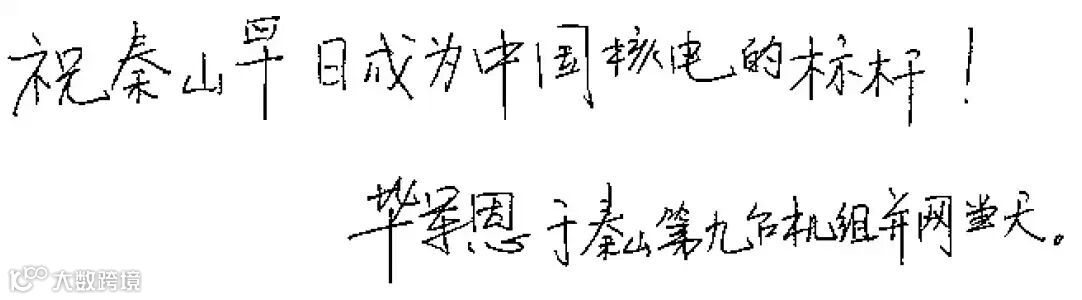 祝秦山早日成为中国核电的标杆！
毕军恩于秦山第九台机组并网当天。
大数跨境